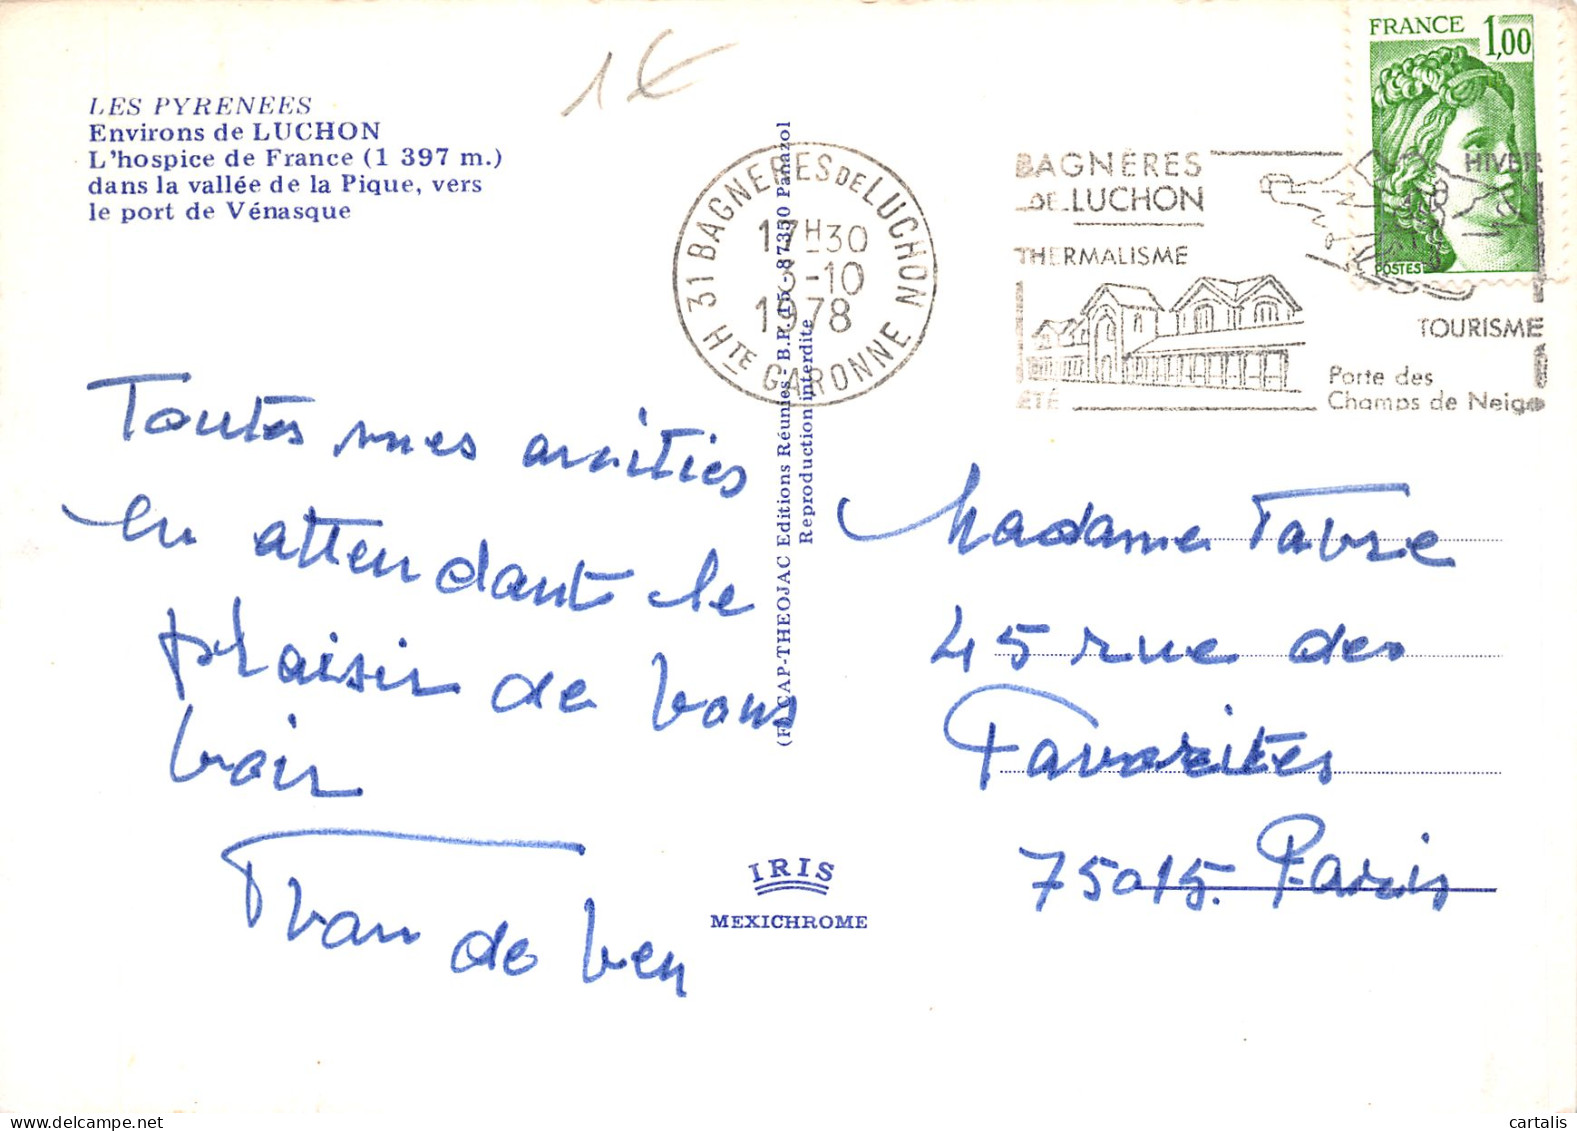 LES PYRENEES
Environs de LUCHON
L'hospice de France (1 397 m.)
dans la vallée de la Pique, vers
le port de Vénasque
1€
31 BAGNERES DE LUCHON
17H30
3-10
1978
HTE GARONNE
BAGNÈRES
DE LUCHON
THERMALISME
ÉTÉ
HIVER
TOURISME
Porte des
Champs de Neige
FRANCE 1,00
POSTES
CAP-THEOJAC Editions Réunies - B.P. 15 - 87350 Panazol
Reproduction interdite
Toutes mes amitiés
en attendant le
plaisir de vous
voir
Madame Favre
45 rue des
Favorites
75015. Paris
IRIS
MEXICHROME
cartalis